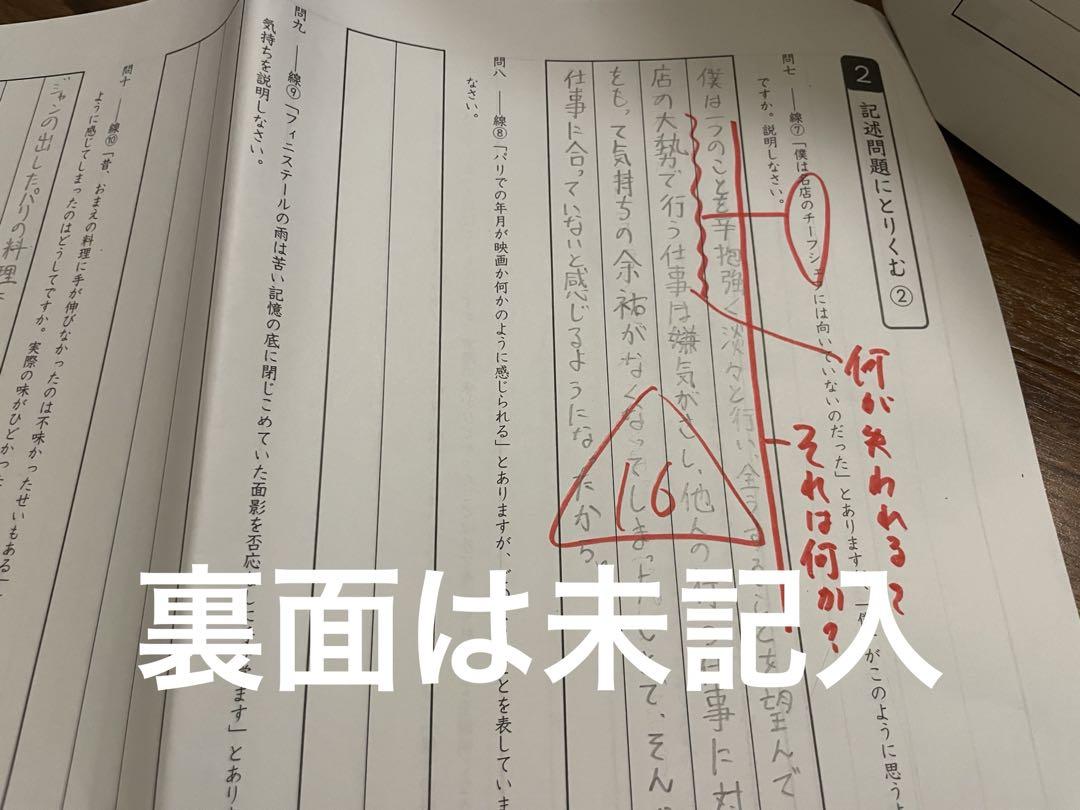 2 記述問題にとりくむ②
問七 ――線⑦「僕は名店のチーフシェフには向いていないのだった」とあります
がこのように思う
ですか。説明しなさい。
何が失われるって
それは何か？
僕は一つのことを辛抱強く淡々と行い、全うすることを望んで
店の大勢で行う仕事は嫌気がさし、他人の
仕事に対
をもって気持ちの余祐がなくなってしまっ
仕事に合っていないと感じるようになったから。
16
問八 ――線⑧「パリでの年月が映画か何かのように感じられる」とありますが、
ことを表してい
なさい。
問九 ――線⑨「フィニステールの雨は苦い記憶の底に閉じこめていた面影を否応
ます」とあり
気持ちを説明しなさい。
問十 ――線⑩「昔、おまえの料理に手が伸びなかったのは不味かったせいもある」
ように感じてしまったのはどうしてですか。実際の味がひどかった
ジャンの出したパリの料理
裏面は未記入